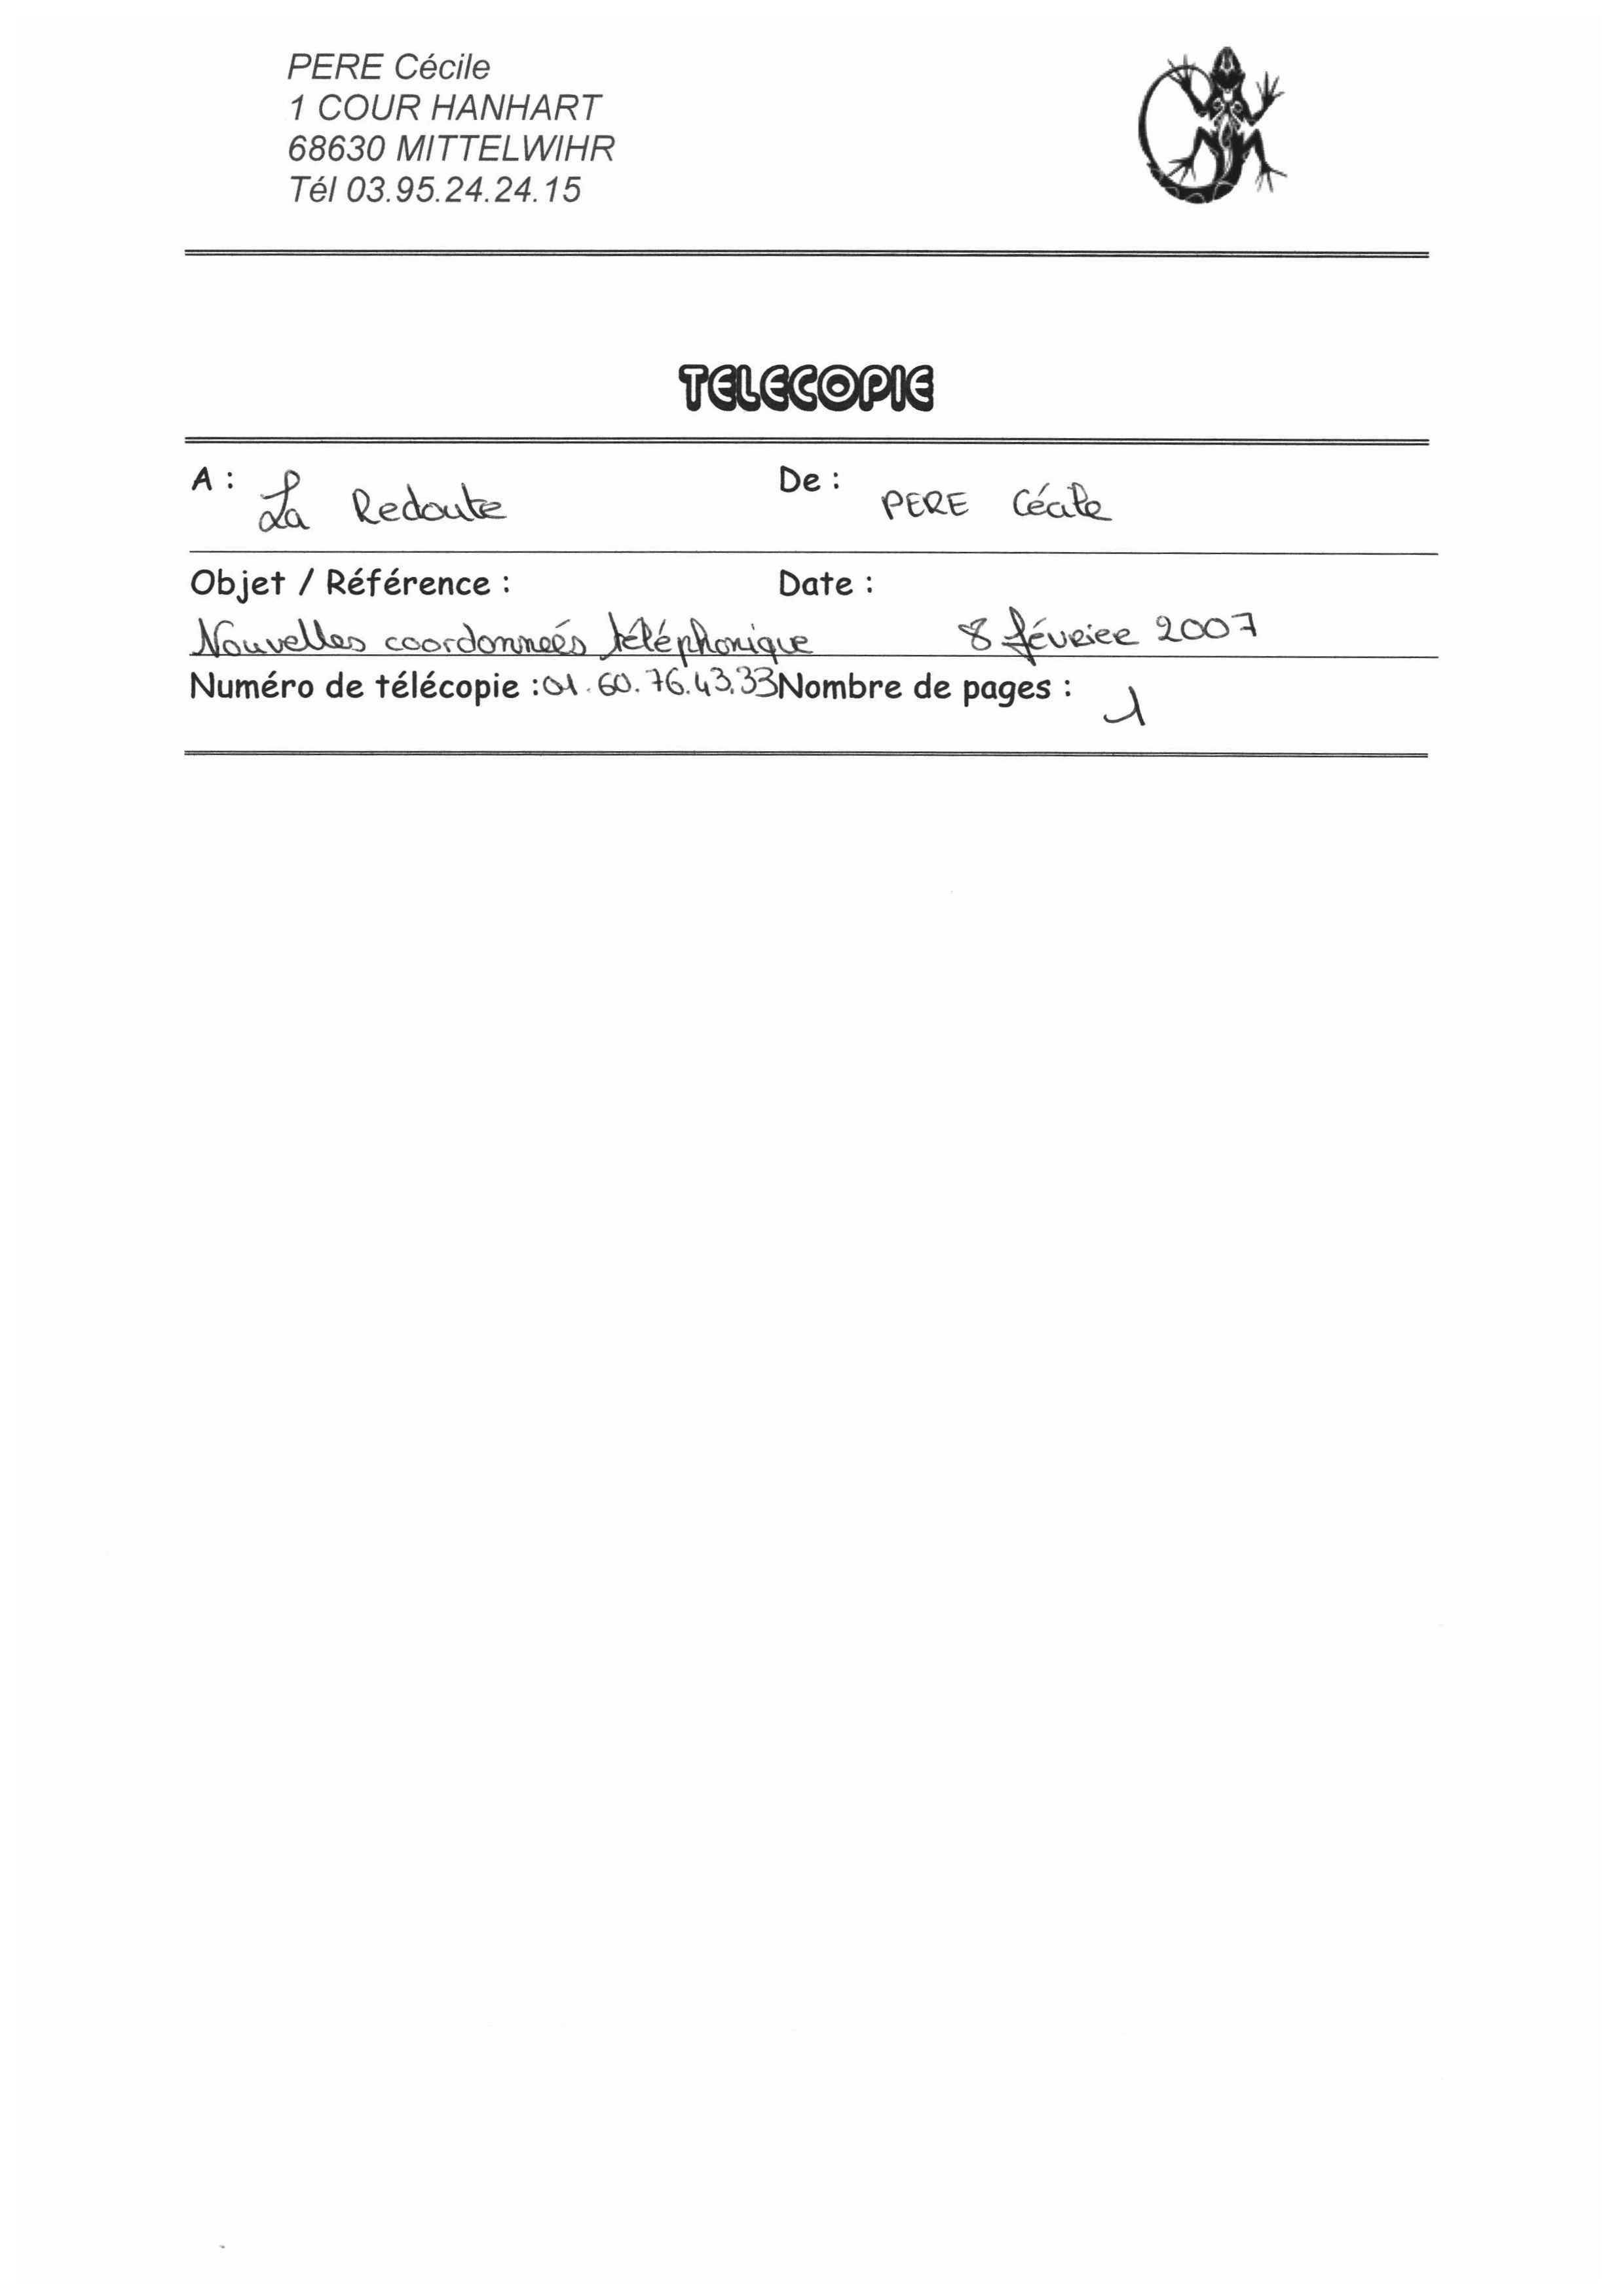 PERE Cécile
1 COUR HANHART
68630 MITTELWIHR
Tél 03.95.24.24.15
TELECOPIE
A : La Redoute De : PERE Cécile
Objet / Référence : Date :
Nouvelles coordonneés téléphonique 8 février 2007
Numéro de télécopie : 01.60.76.43.33 Nombre de pages : 1